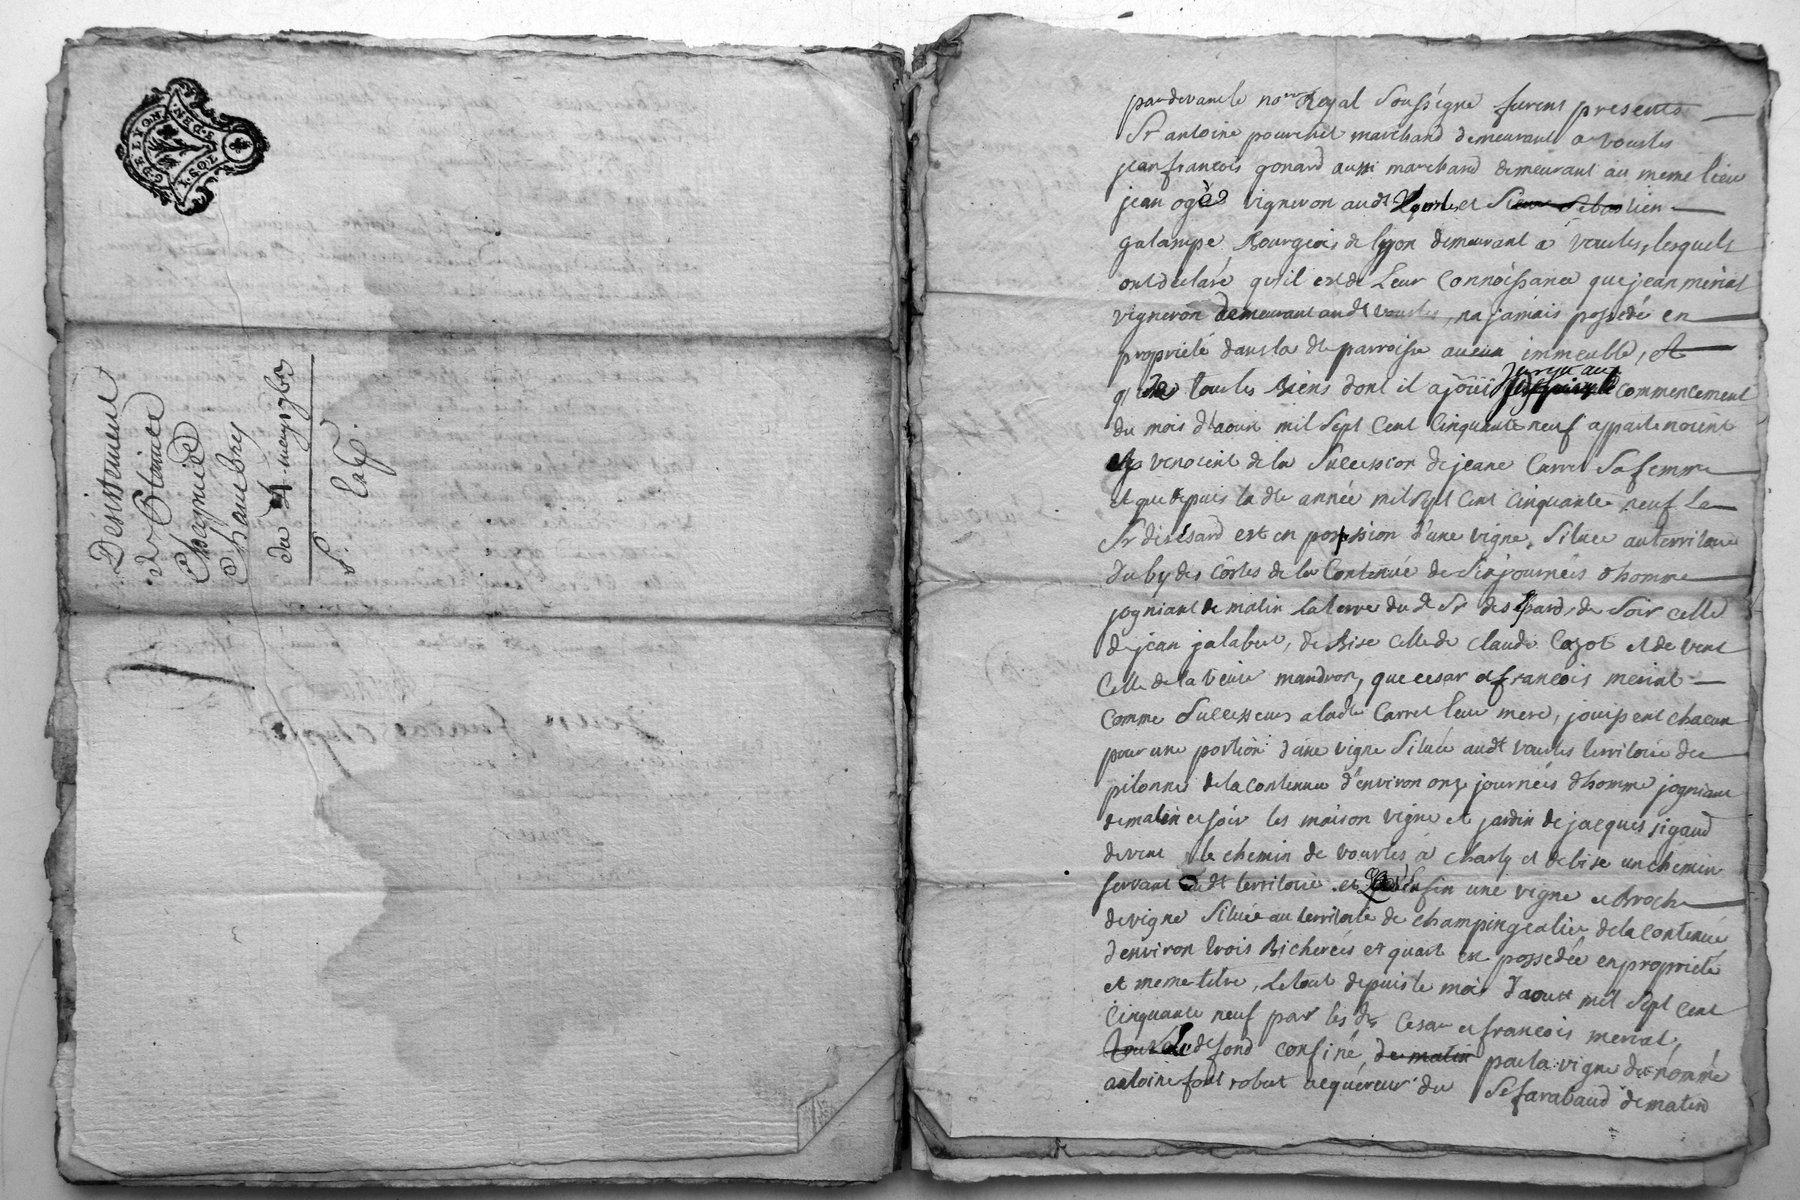 G. DE LYON.
2. SOLS
8. DEN.
Desistement
de Etienne
Chapuis
Chambry
du 4 may 1762
S. Laf.
pardevant le no.re Royal Soussigne furent presents
Sr antoine pourchet marchand demeurant a vourles
jean francois gonard aussi marchand demeurant au meme lieu
jean ogé vigneron audt et Sieur Sebastien
galampe Bourgeois de lyon demeurant a vourles, lesquels
ont declaré qu'il est de Leur Connoissance que jean meriat
vigneron demeurant audt vourles, na jamais possedé en
proprieté dans la dte parroisse aucun immeuble, et
que tous les Biens dont il a joüii jusqu'au commencement
du mois d'aoust mil Sept Cent Cinquante neuf appartenoient
et venoient de la Sucession de jeane Carret Sa femme
et que depuis la dte année mil Sept Cent Cinquante neuf Le
Sr desésard est en possession d'une vigne Située au territoire
du by des Côtes de la Contenüe de Six journées d'homme
jogniant de matin la terre du dt Sr desésard, de Soir celle
de jean jalabert, de Bise celle de Claude Cazot et de vent
Celle de la veuve mandron, que cesar et francois meriat
Comme Sucesseurs a ladte Carret leur mere, jouissent chacun
pour une portion d'une vigne Située audt vourles territoire de
pitonne de la contenue d'environ onze journées d'homme jogniant
de matin et soir les maison vigne et jardin de jacques sigaud
de vent le chemin de vourles a Charly et de bise un chemin
servant audt territoire et enfin une vigne et Broche
de vigne Située au territoire de champingealier de la contenüe
d'environ trois Bicherées et quart est possedée en proprieté
et meme titre, Le tout depuis le mois d'aoust mil Sept Cent
Cinquante neuf par les ds Cesar et francois meriat,
Le dt fond confiné, de matin par la vigne du nommé
antoine font robert acquéreur du Sr farabaud de matin